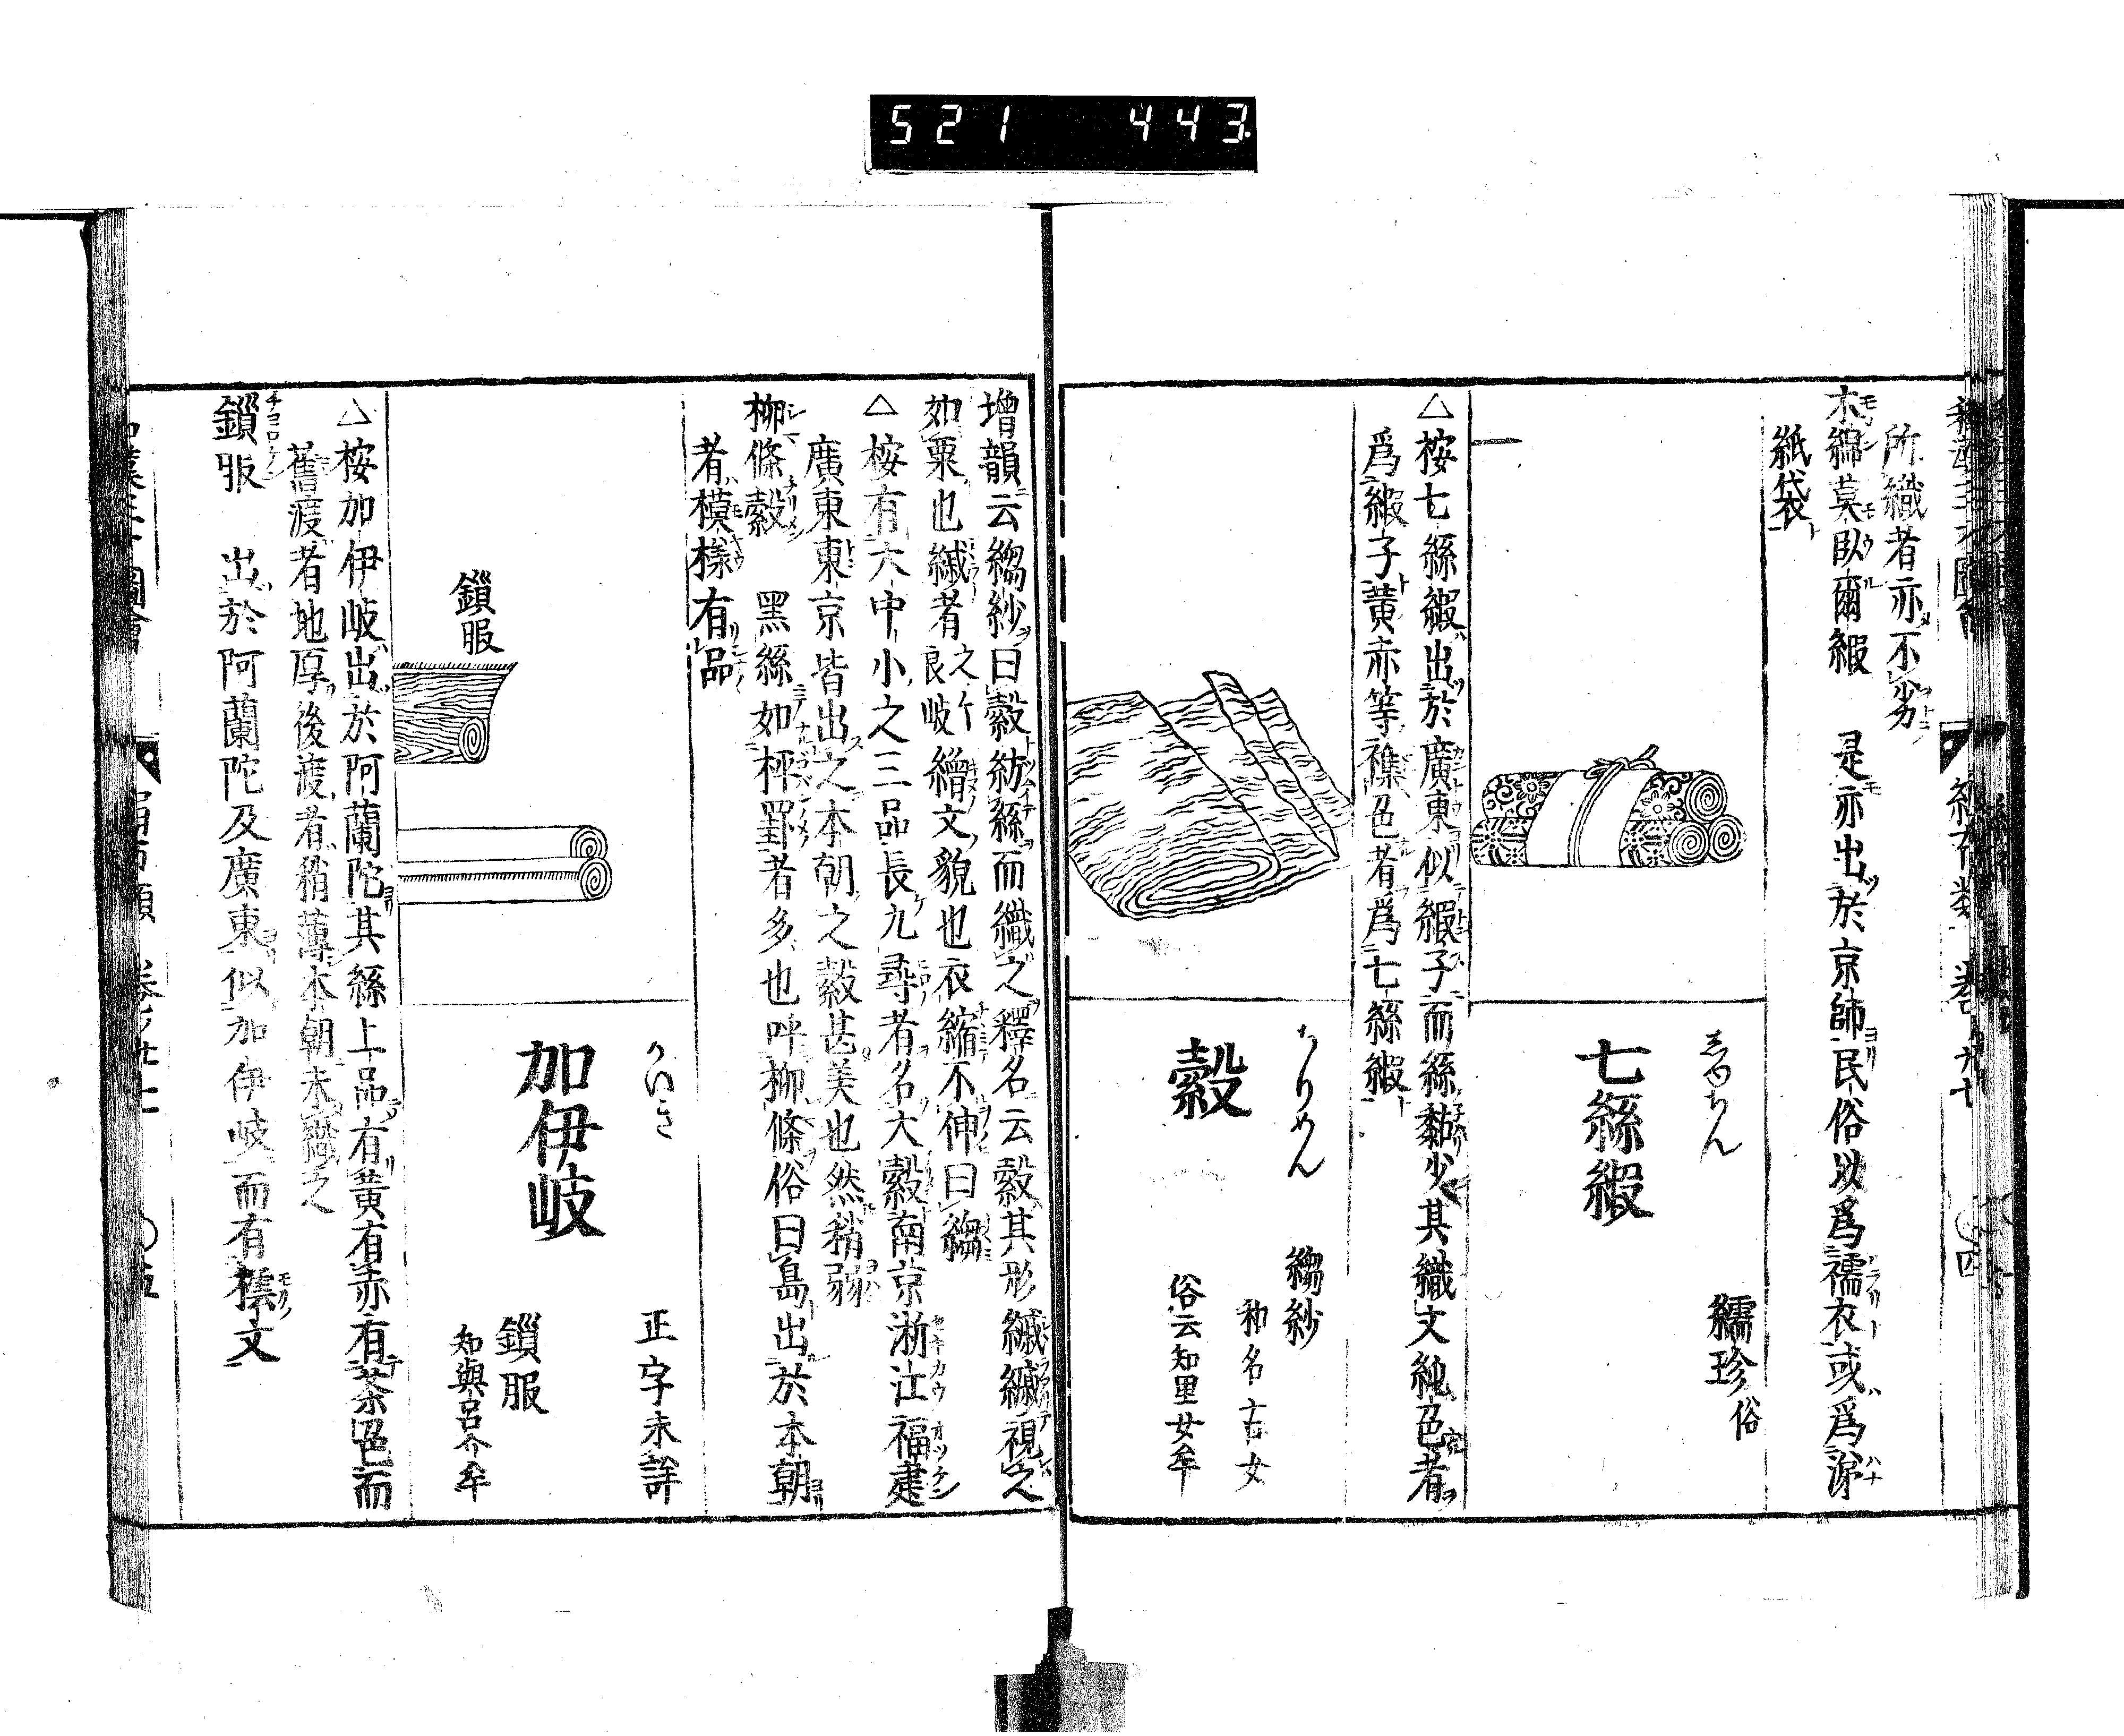 521 443.
所織者亦不劣
木綿莫臥爾緞 是亦出於京師民俗以爲襦衣或爲
紙袋
七絲緞
𦆯珍 俗
△按七絲緞出於廣東似緞子而絲黏少其織文純色者
爲緞子黃赤等襍色者爲七絲緞
ちりめん
縠
縐紗
和名
俗云知里女牟
增韻云縐紗曰縠紡絲而織之釋名云縠其形𦄑𦄑視之
如粟也
繒文貌也衣縮不伸曰縐
△按有大中小之三品長九尋者名大縠南京浙江福建
廣東東京皆出之本朝之縠甚美也然稍弱
柳條縠 黑絲如枰罫者多也呼柳條俗曰島出於本朝
者模樣有品
鎖服
かいき
加伊岐
正字未詳
鎖服
知與呂介牟
△按加伊岐出於阿蘭陀其絲上品有黃有赤有茶色而
舊渡者地厚後渡者稍薄本朝未織之
鎖服 出於阿蘭陀及廣東似加伊岐而有橒文